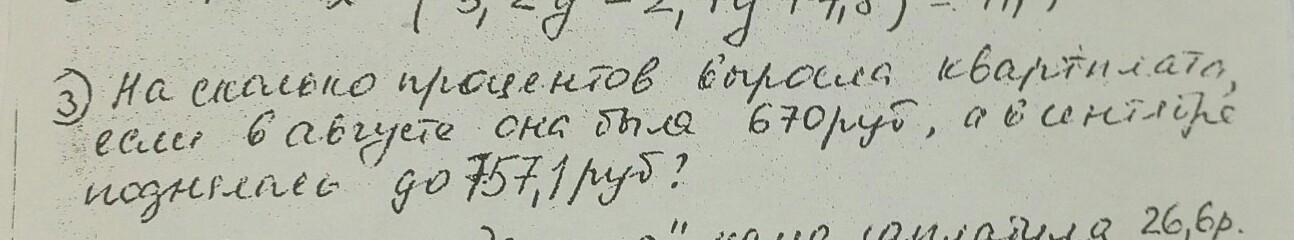 3) На сколько процентов выросла квартплата,
если в августе она была 670 руб, а в сентябре
поднялась до 757,1 руб?
26,6 р.